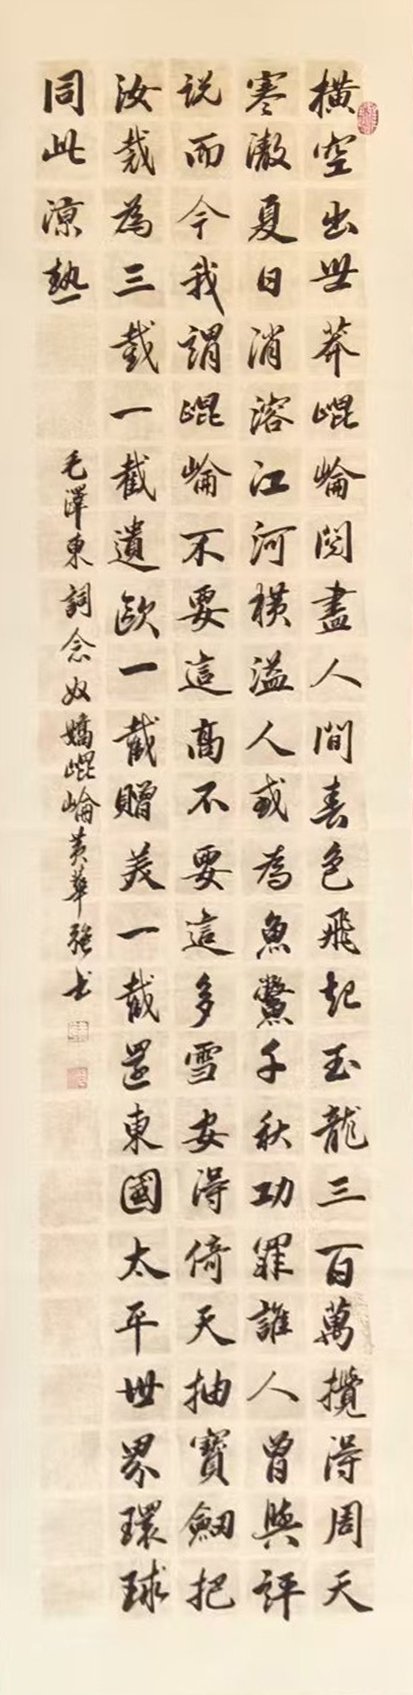 橫空出世莽崐崘閱盡人間春色飛起玉龍三百萬攪得周天
寒澈夏日消溶江河橫溢人或為魚鱉千秋功罪誰人曾與評
说而今我謂崐崘不要這高不要這多雪安得倚天抽寶劔把
汝裁為三截一截遺歐一截贈美一截還東國太平世界環球
同此涼熱
毛澤東詞念奴嬌崐崘黄華強书